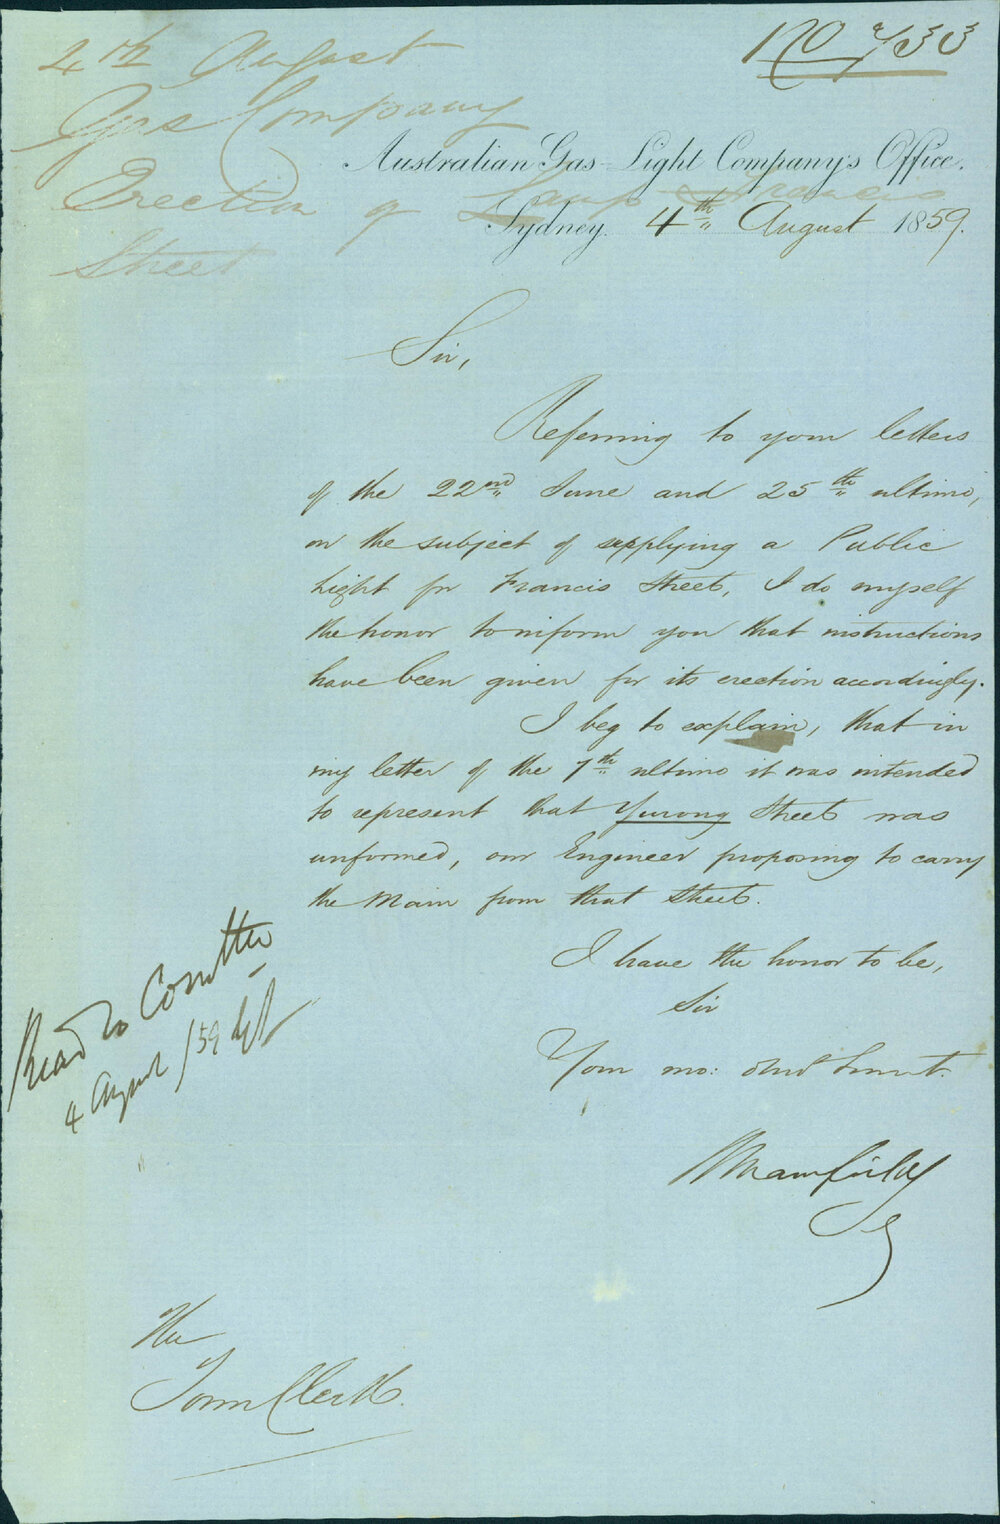 No 733
4th August
Gas Company
Erection of Lamp Francis
Street
Australian Gas-Light Company's Office.
Sydney. 4th August 1859.
Sir,
Referring to your letters
of the 22nd June and 25th ultimo,
on the subject of supplying a Public
Light for Francis Street, I do myself
the honor to inform you that instructions
have been given for its erection accordingly.
I beg to explain, that in
my letter of the 7th ultimo it was intended
to represent that Yurong Street was
unformed, our Engineer proposing to carry
the Main from that Street.
I have the honor to be,
Sir
Your mo: obed Servnt.
Read to Comttee
4 August /59
The
Town Clerk.